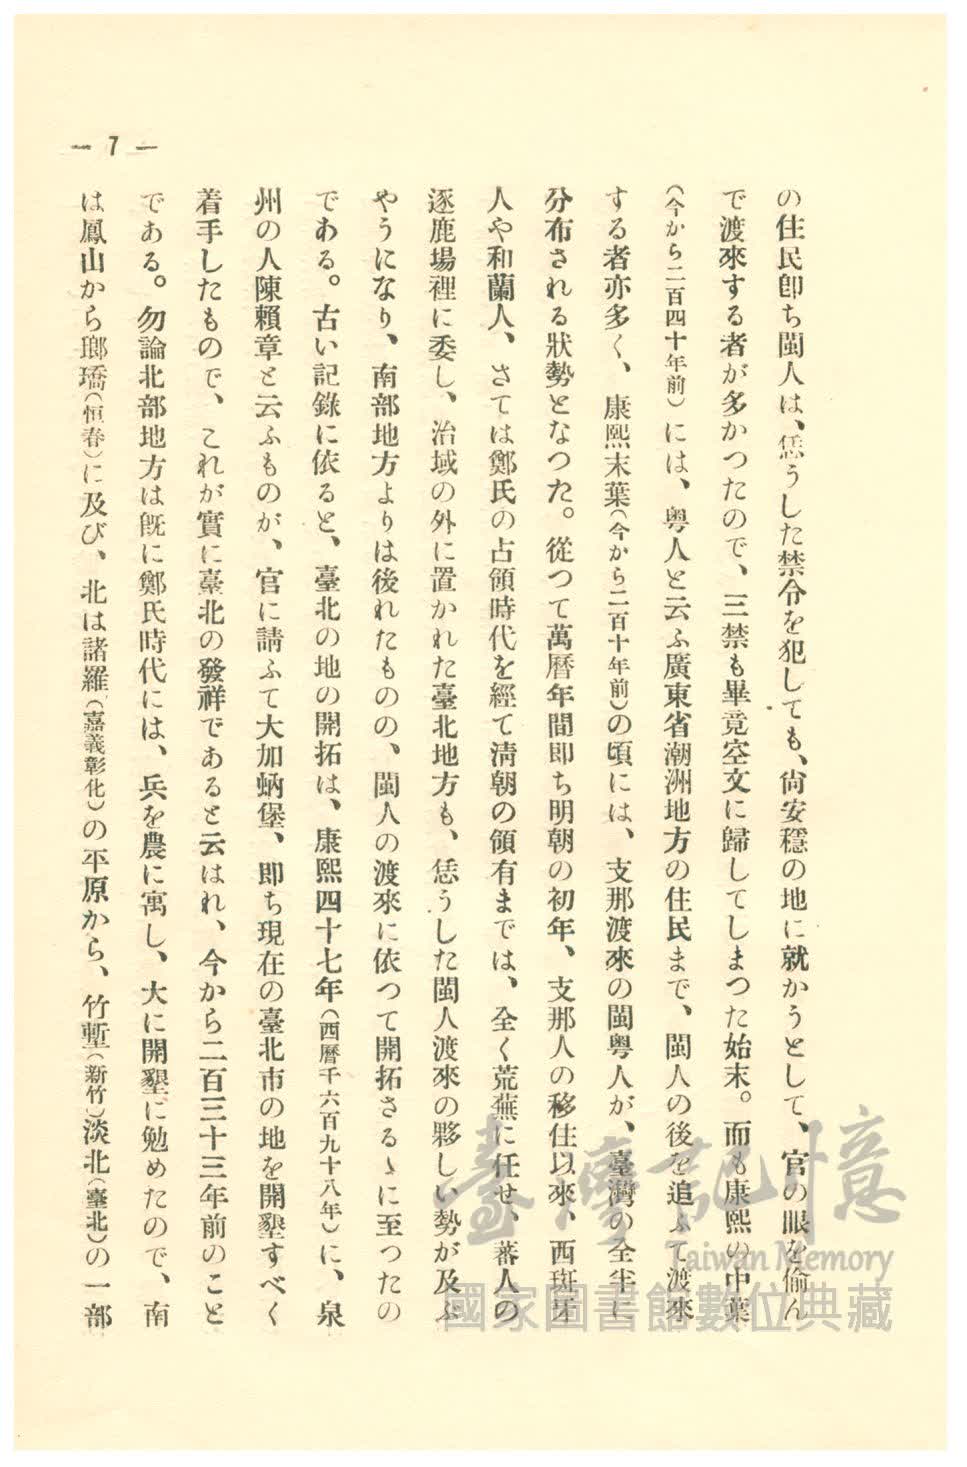 — 7 —
の住民卽ち閩人は、恁うした禁令を犯しても、尙安穩の地に就かうとして、官の眼を偸ん
で渡來する者が多かつたので、三禁も畢竟空文に歸してしまつた始末。而も康熙の中葉
（今から二百四十年前）には、粤人と云ふ廣東省潮洲地方の住民まで、閩人の後を追ふて渡來
する者亦多く、康熙末葉（今から二百十年前）の頃には、支那渡來の閩粤人が、臺灣の全半に
分布される狀勢となつた。從つて萬曆年間卽ち明朝の初年、支那人の移住以來、西班牙
人や和蘭人、さては鄭氏の占領時代を經て淸朝の領有までは、全く荒蕪に任せ、蕃人の
逐鹿場裡に委し、治域の外に置かれた臺北地方も、恁うした閩人渡來の夥しい勢が及ぶ
やうになり、南部地方よりは後れたものの、閩人の渡來に依つて開拓さるゝに至つたの
である。古い記錄に依ると、臺北の地の開拓は、康熙四十七年（西曆千六百九十八年）に、泉
州の人陳賴章と云ふものが、官に請ふて大加蚋堡、卽ち現在の臺北市の地を開墾すべく
着手したもので、これが實に臺北の發祥であると云はれ、今から二百三十三年前のこと
である。勿論北部地方は旣に鄭氏時代には、兵を農に寓し、大に開墾に勉めたので、南
は鳳山から瑯璚（恒春）に及び、北は諸羅（嘉義彰化）の平原から、竹塹（新竹）淡北（臺北）の一部
臺灣記憶
Taiwan Memory
國家圖書館數位典藏